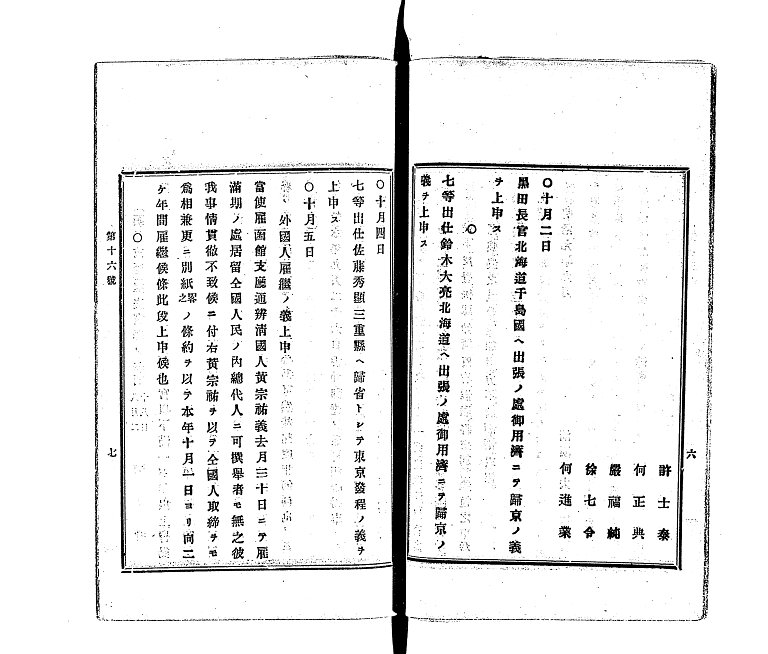 六
許士泰
何正典
嚴福純
徐七令
何進業
〇十月二日
黑田長官北海道千島國ヘ出張ノ處御用濟ニテ歸京ノ義
ヲ上申ス
〇
七等出仕鈴木大亮北海道ヘ出張ノ處御用濟ニテ歸京ノ
義ヲ上申ス
〇十月四日
七等出仕佐藤秀顯三重縣ヘ歸省トシテ東京發程ノ義ヲ
上申ス
〇十月五日
外國人雇繼ノ義上申
當使雇函館支廳通辨清國人黃宗祐義去月三十日ニテ雇
滿期ノ處居留仝國人民ノ內總代人ニ可撰舉者モ無之彼
我事情貫徹不致候ニ付右黃宗祐ヲ以テ仝國人取締ヲモ
爲相兼更ニ別紙畧之ノ條約ヲ以テ本年十月一日ヨリ向二
ケ年間雇繼候條此段上申候也
〇
第十六號
七